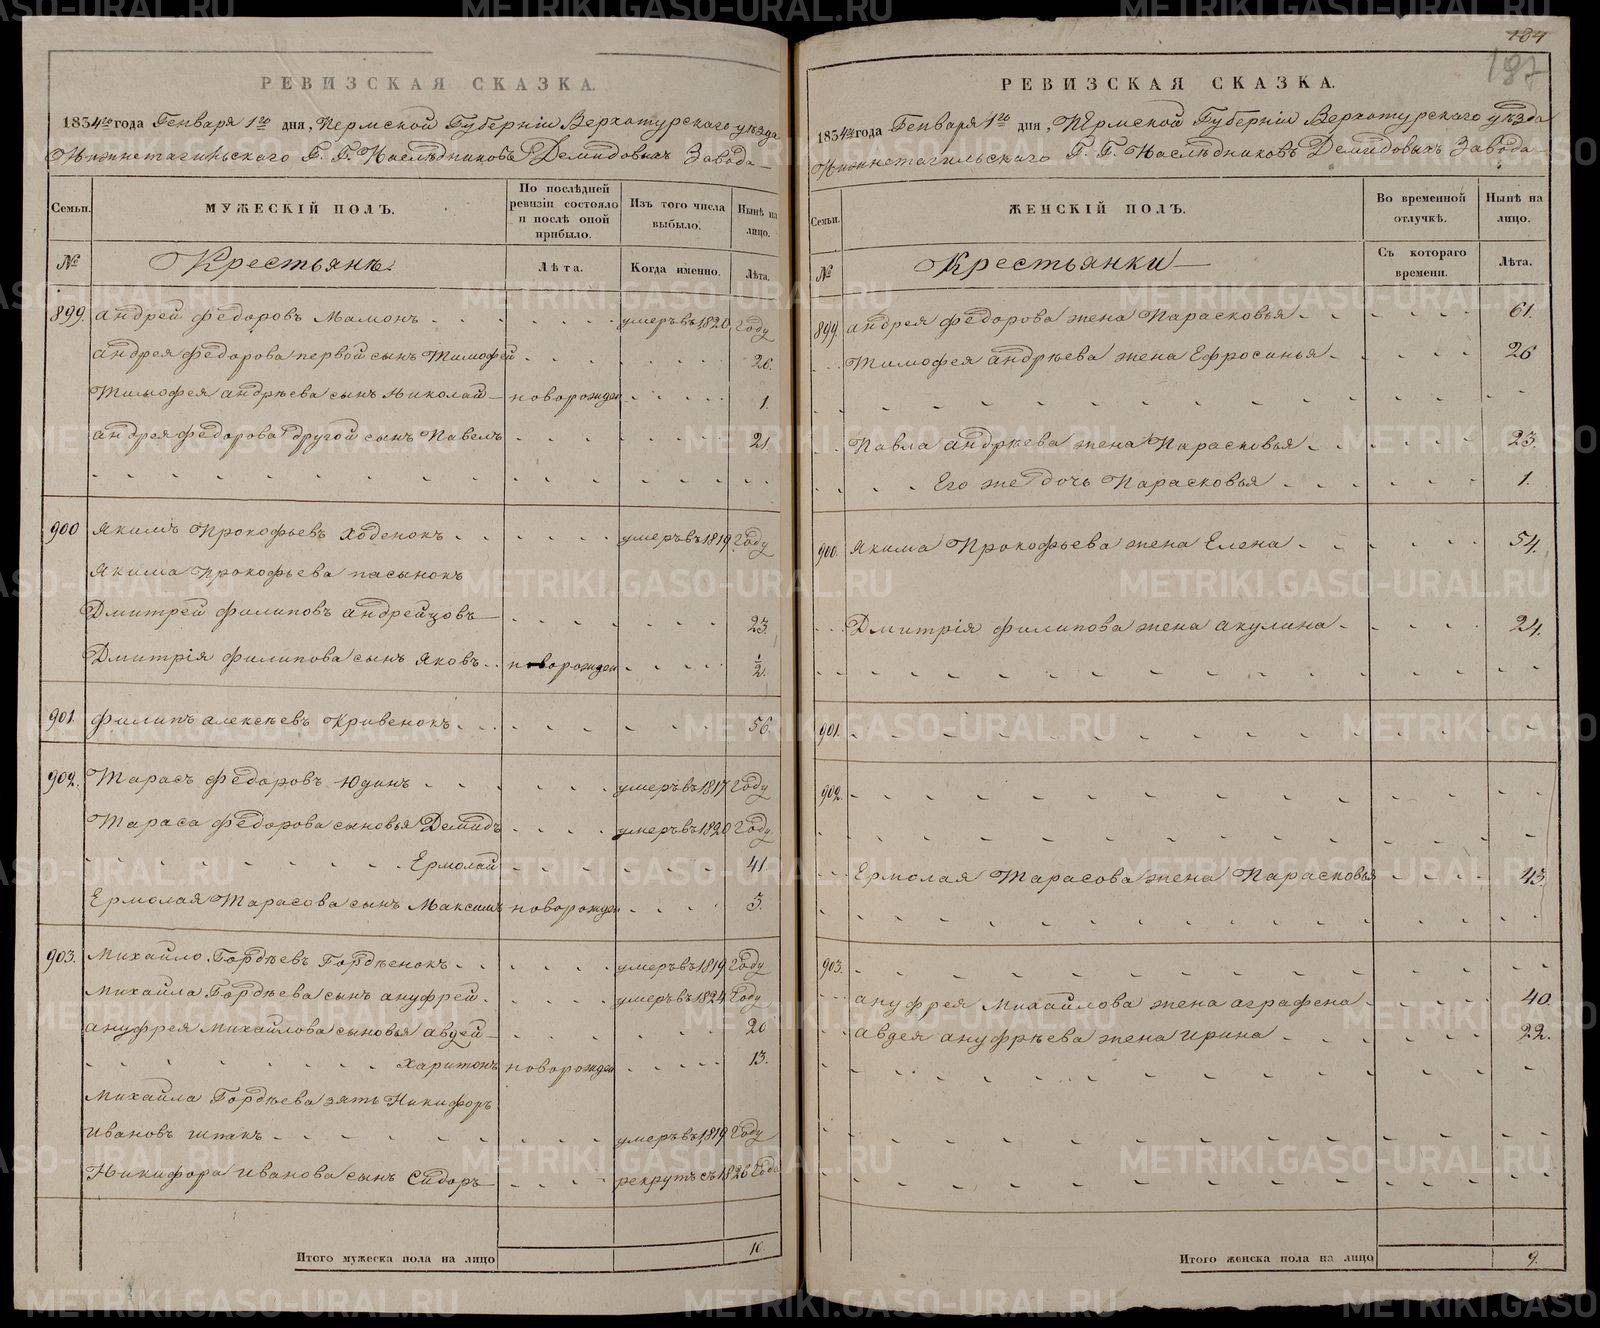 РЕВИЗСКАЯ СКАЗКА.
1834го года Генваря 1го дня, Пермской Губерніи Верхотурскаго уѣзда
Нижнетагильскаго Г. Г. Наслѣдниковъ Демидовыхъ Завода
Семьи.
МУЖЕСКІЙ ПОЛЪ.
По послѣдней ревизіи состояло и послѣ оной прибыло.
Изъ того числа выбыло.
Нынѣ на лицо.
№
Крестьянъ
Лѣта.
Когда именно.
Лѣта.
899. Андрей Федоровъ Мамонъ умеръ въ 1820 году
Андрея Федорова первой сынъ Тимофей 26.
Тимофея Андрѣева сынъ Николай новорожден 1.
Андрея Федорова другой сынъ Павелъ 21.
900 Якимъ Прокофьевъ Ходенокъ умеръ въ 1819 году
Якима Прокофьева пасынокъ
Дмитрей Филиповъ Андрейцовъ 23.
Дмитрія Филипова сынъ Яковъ новорожден 1/2.
901. Филипъ Алексѣевъ Кривенокъ 56.
902. Тарасъ Федоровъ Юдинъ умеръ въ 1817 году
Тараса Федорова сыновья Демидъ умеръ въ 1820 году
Ермолай 41.
Ермолая Тарасова сынъ Максимъ новорожден 3.
903. Михайло Гордѣевъ Гордѣенокъ умеръ въ 1819 году
Михайла Гордѣева сынъ Ануфрей умеръ въ 1824 году
Ануфрея Михайлова сыновья Авдей 20
Харитонъ новорожден 13.
Михайла Гордѣева зять Никифоръ
Ивановъ Шпакъ умеръ въ 1819 году
Никифора Иванова сынъ Сидоръ рекрутъ съ 1826 года
Итого мужеска пола на лицо 10
184
187
РЕВИЗСКАЯ СКАЗКА.
1834го года Генваря 1го дня, Пермской Губерніи Верхотурскаго уѣзда
Нижнетагильскаго Г. Г. Наслѣдниковъ Демидовыхъ Завода
Семьи.
ЖЕНСКІЙ ПОЛЪ.
Во временной отлучкѣ.
Нынѣ на лицо.
№
Крестьянки
Съ котораго времени.
Лѣта.
899. Андрея Федорова жена Парасковья 61.
Тимофея Андрѣева жена Ефросинья 26
Павла Андрѣева жена Парасковья 23.
Его же дочь Парасковья 1.
900. Якима Прокофьева жена Елена 54.
Дмитрія Филипова жена Акулина 24.
901.
902.
Ермолая Тарасова жена Парасковья 43.
903.
Ануфрея Михайлова жена Аграфена 40.
Авдея Ануфрѣева жена Ирина 22.
Итого женска пола на лицо 9.
METRIKI.GASO-URAL.RU